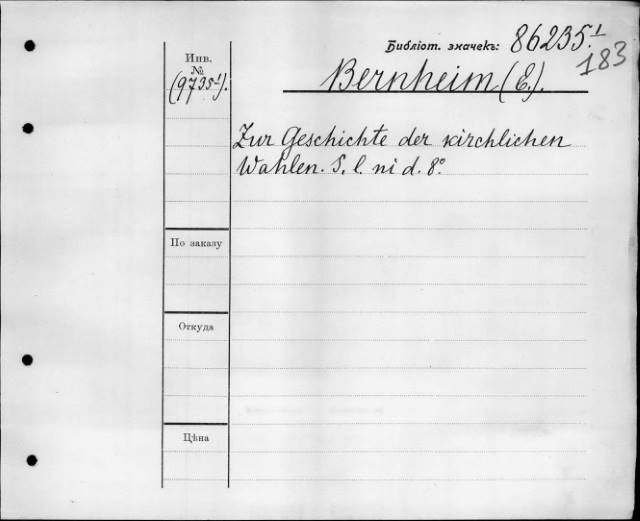 Библіот. значекъ: 86235.¹
183
Инв.
№
(9735¹).
Bernheim (E.).
Zur Geschichte der kirchlichen
Wahlen. S. l. ni d. 8°.
По заказу
Откуда
Цѣна